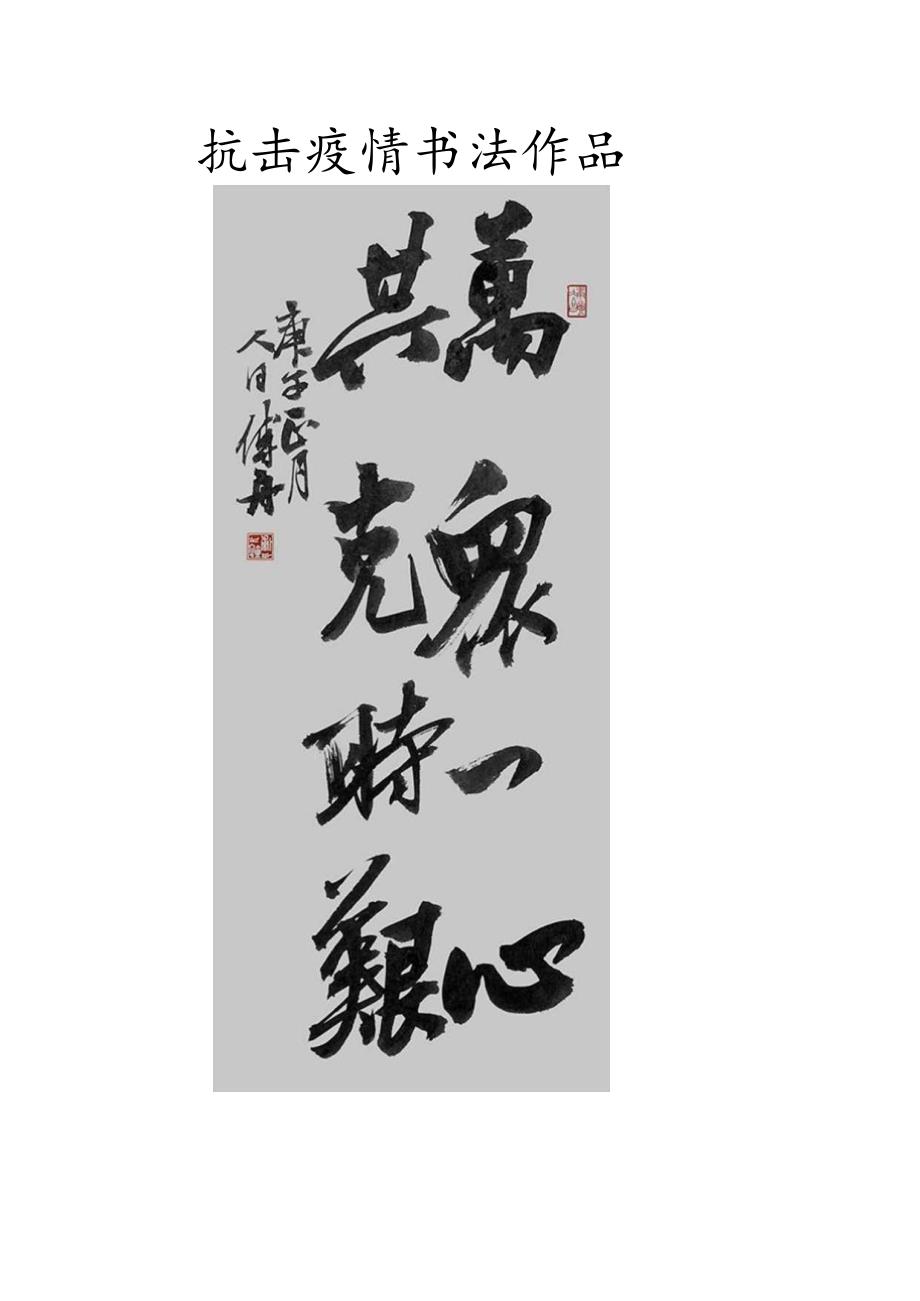 抗击疫情书法作品
萬眾一心
共克時艱
庚子正月
人日傅舟